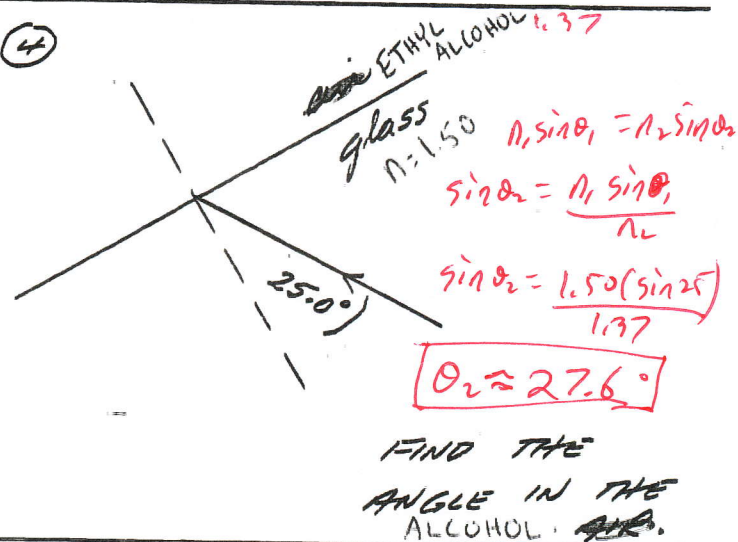 4
ETHYL
ALCOHOL 1.37
glass
n=1.50
n₁sinθ₁ = n₂sinθ₂
sinθ₂ = n₁ sinθ₁
n₂
sinθ₂ = 1.50(sin25)
1.37
25.0°
θ₂≈27.6°
FIND THE
ANGLE IN THE
ALCOHOL.